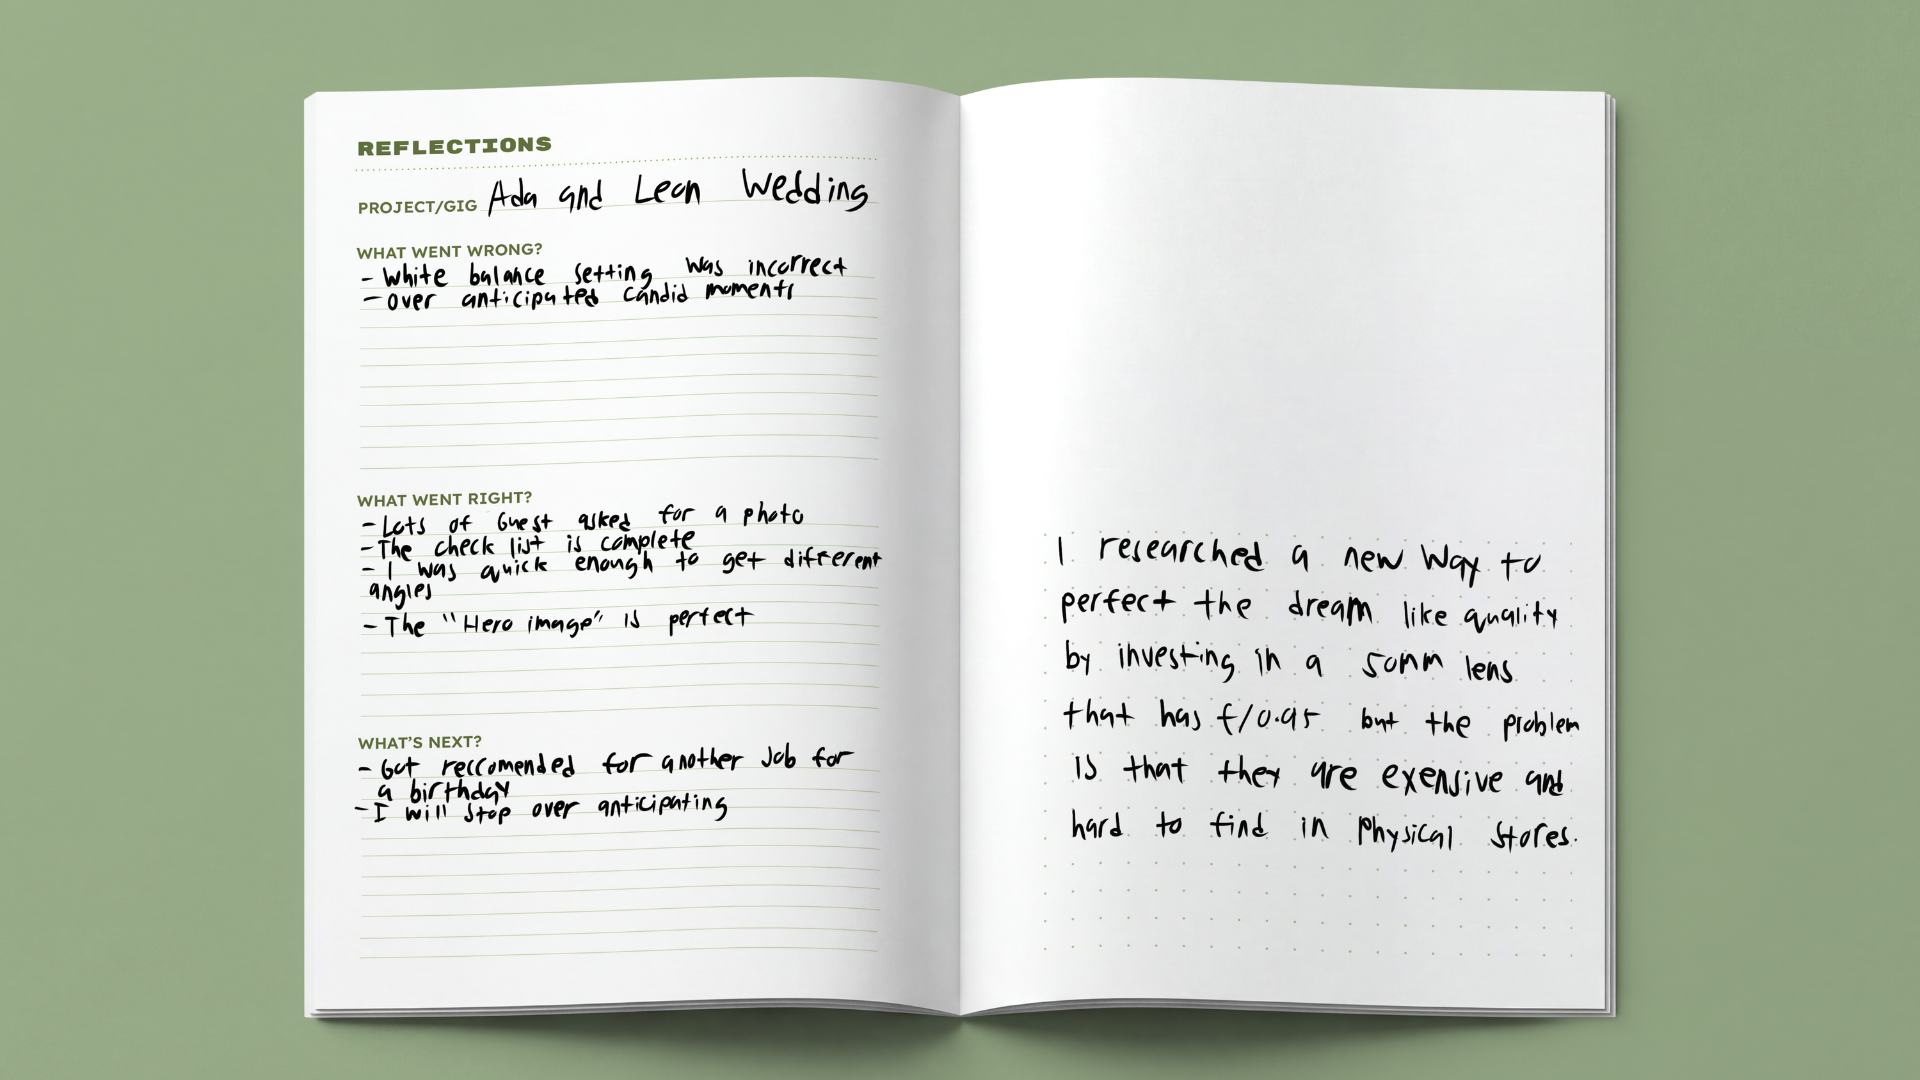 REFLECTIONS
PROJECT/GIG Ada and Leon Wedding
WHAT WENT WRONG?
- White balance setting was incorrect
- over anticipated candid moments
WHAT WENT RIGHT?
- Lots of Guest asked for a photo
- The check list is complete
- I was quick enough to get different
angles
- The "Hero image" is perfect
WHAT'S NEXT?
- Got reccomended for another Job for
a birthday
- I will stop over anticipating
I researched a new way to
perfect the dream like quality
by investing in a 50mm lens
that has f/0.95 but the problem
is that they are exensive and
hard to find in physical stores.